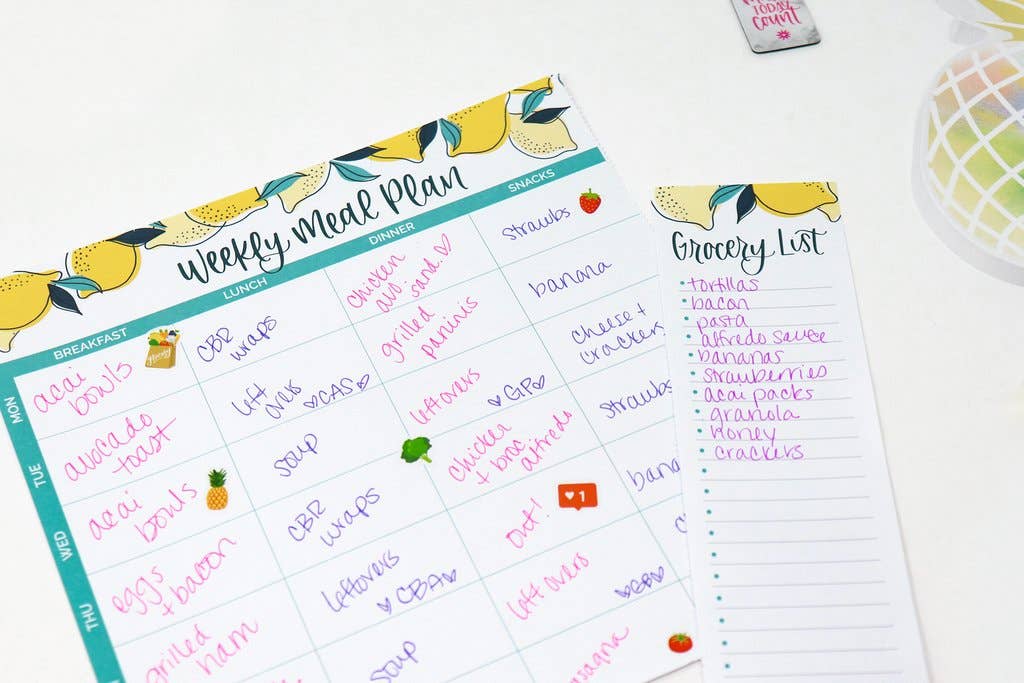 TODAY
count
Weekly Meal Plan
BREAKFAST
LUNCH
DINNER
SNACKS
MON
acai
bowls
CBR
wraps
chicken
avo.
sand. ♡
strawbs
TUE
avocado
toast
left
overs
♡CAS♡
grilled
paninis
banana
WED
acai
bowls
soup
leftovers
♡GP♡
cheese +
crackers
THU
eggs
+ bacon
CBR
wraps
chicken
+ broc
alfredo
strawbs
grilled
ham
leftovers
♡CBA♡
out!
1
bana
soup
left overs
asagna
Grocery List
• tortillas
• bacon
• pasta
• alfredo sauce
• bananas
• strawberries
• acai packs
• granola
• honey
• crackers